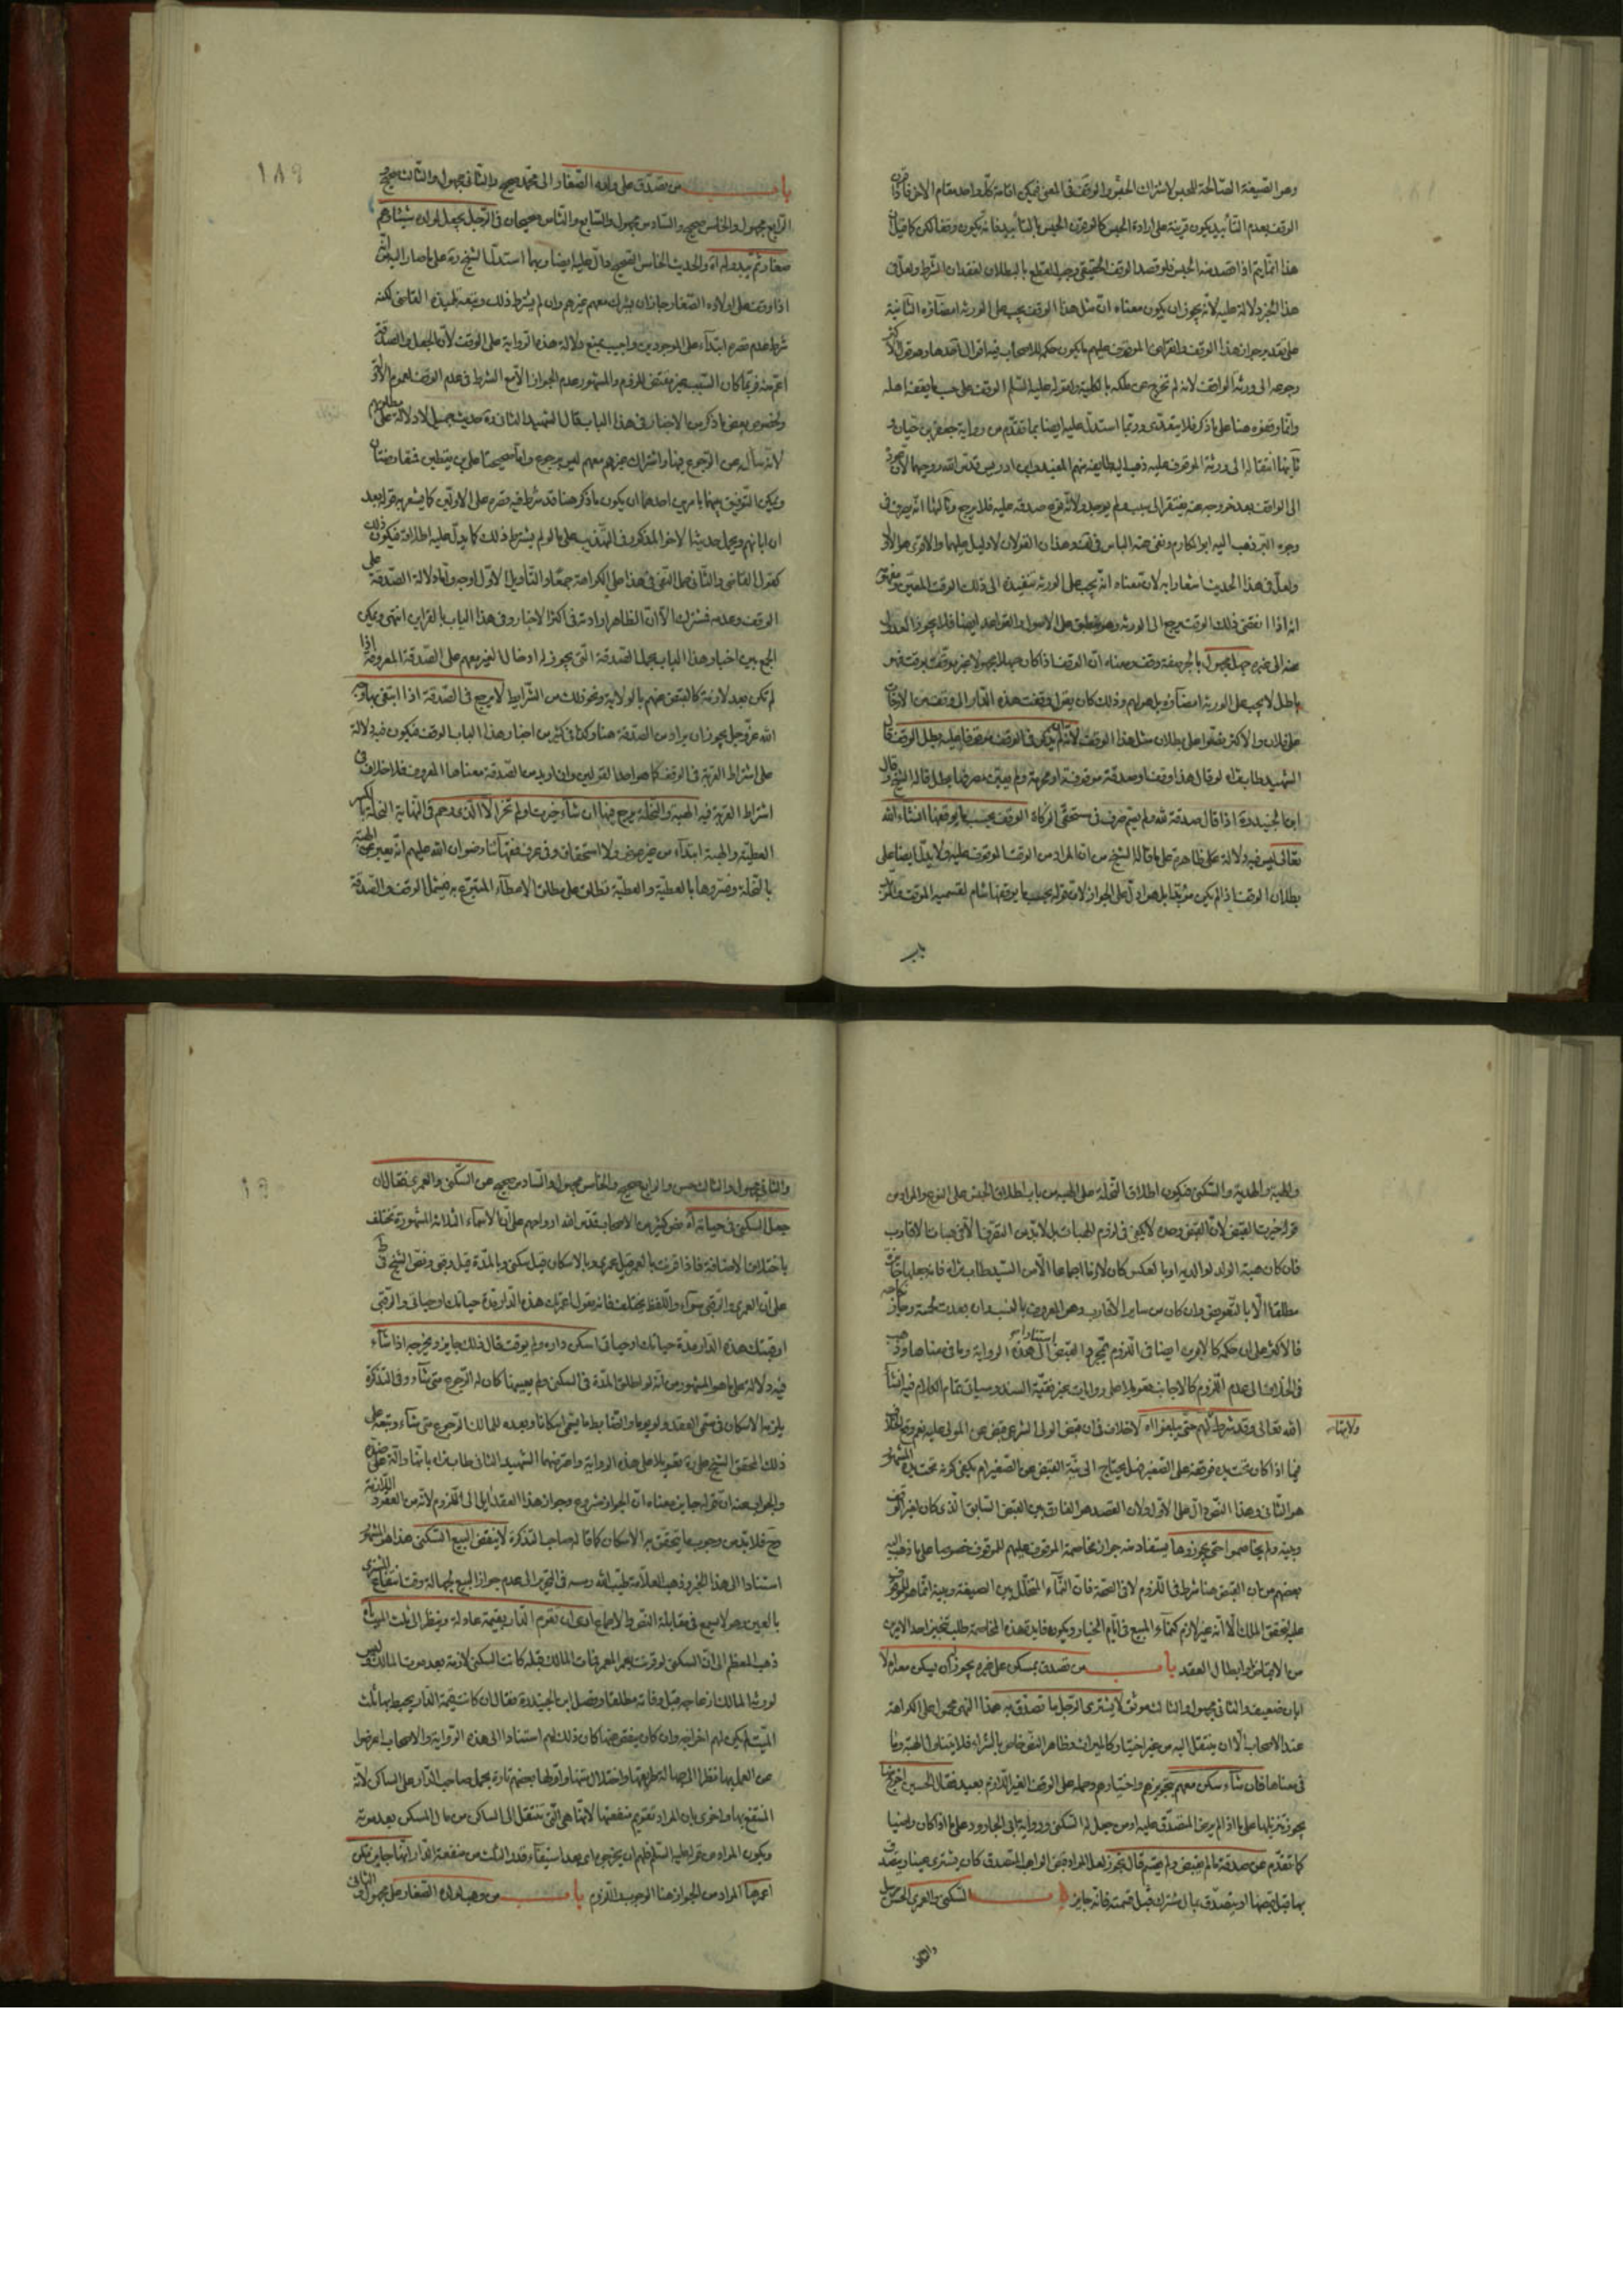 وهو الصيغة الصالحة للحبس لاشتراك الحبس والوقف في المعنى فيمكن اقامة كل واحد مقام الاخر فاذا قرن
الوقف بعدم التأبيد يكون قرينة على ارادة الحبس كما لو قرن الحبس بالتأبيد فانه يكون وقفا لكن كما قيل ان
هذا انما يتم اذا قصد منه الحبس فلو قصد الوقف الحقيقي وجب القطع بالبطلان لفقدان الشرط ولعل في
هذا الخبر دلالة عليه لانه يجوز ان يكون معناه ان مثل هذا الوقف يجب على الورثة امضاؤه الثانية
على تقدير جواز هذا الوقف وانقراض الموقوف عليهم ما يكون حكمه للاصحاب فيه اقوال احدها وهو قول الاكثر
رجوعه الى ورثة الواقف لانه لم تخرج عن ملكه بالكلية ولقوله عليه السلم الوقف على حسب ما يقفه اهله
وانما وقفوه هنا على ما ذكر فلا يتعدى وربما استدل عليه ايضا بما تقدم من رواية جعفر بن حيان و
ثانيها انتقاله الى ورثة الموقوف عليه ذهب اليه طايفة منهم المفيد وابن ادريس قدس الله روحيهما لان عوده
الى الواقف بعد خروجه عنه يفتقر الى سبب ولم يوجد ولانه نوع صدقة عليه فلا يرجع وثالثها انه يصرف في
وجوه البر ذهب اليه ابو المكارم ونفى عنه الباس في لف وهذان القولان لا دليل عليهما والاقوى هو الاول
ولعل في هذا الحديث اشعارا به لان معناه انه يجب على الورثة تنفيذه الى ذلك الوقت المعين ومفهومه
انه اذا انقضى ذلك الوقت يرجع الى الورثة وهو ينطبق على الاصول والقواعد ايضا فلا يجوز العدول
عنه الى غيره جهل مجهول بالجر صفة وقف ومعناه ان الوقف اذا كان جهلا مجهولا غير موقت بوقت فهو
باطل لا يجب على الورثة امضاؤه بل هو لهم وذلك كان يقول وقفت هذه الدار الى وقت من الاوقات
على فلان والاكثر نصوا على بطلان مثل هذا الوقف لانه لم يكن في الوقف موقوفا عليه وبطل الوقف قال
الشهيد طاب ثراه لو قال هذا وقف او صدقة موقوفة او محرمة ولم يعين مصرفها بطل قاله الشيخ وقال
ابن الجنيد ره اذا قال صدقة لله ولم يسم صرف في مستحقي الزكاة الوقف بحسب ما يوقفها انشاء الله
تعالى ليس فيه دلالة على ظاهرة على ما قاله الشيخ من ان المراد من الوقت الموقوف عليه ولا يدل ايضا على
بطلان الوقف اذا لم يكن مؤبدا بل هو ادل على الجواز لان قوله بحسب ما يوقفها شامل لقسميه الموقت والمؤبد
باب
باب من تصدق على ولده الصغار الى محمد صحيح والثاني مجهول والثالث صحيح و
الرابع مجهول والخامس صحيح والسادس مجهول والسابع والثامن صحيحان في الرجل يجعل لولده شيئا وهم
صغار ثم يبدو له اه والحديث الخامس الصحيح دال عليه ايضا وبهما استدل الشيخ ره على ما صار اليه من انه
اذا وقف على اولاده الصغار جاز ان يشرك معهم غيرهم وان لم يشترط ذلك وتبعه تلميذه القاضي لكنه
شرط عدم قصره ابتداء على الموجودين واجيب بمنع دلالة هذه الرواية على الوقف لان الجعل والصدقة
اعم منه فربما كان السبب غير مقتض للزوم والمشهور عدم الجواز الا مع الشرط في عدم الوقف لعموم الاوفو
وخصوص بعض ما ذكر من الاخبار في هذا الباب قال الشهيد الثاني ره حديث جميل لا دلالة على مطلبهم
لانه سأل عن الرجوع فيها واشتراك غيرهم معهم ليس برجوع واما صحيحة علي بن يقطين فقد وضحنا
ويمكن التوفيق بينهما بامرين احدهما ان يكون ما ذكر هنا قد شرط فيه قصره على الاولين كما يشعر به قوله بعد
ان ابانهم ويحمل حديثه الاخر المذكور في التهذيب على ما لو لم يشترط ذلك كما يدل عليه اطلاقه فيكون ذلك
كقول القاضي والثاني حمل النهي في هذا على الكراهة جمعا والتأويل الاول اوجه واما دلالة الصدقة على
الوقف وعدمه فمشترك الا ان الظاهر ارادته في اكثر الاخبار وفي هذا الباب بالقراين انتهى ويمكن
الجمع بين اخبار هذا الباب بحمل الصدقة التي يجوز له ادخال الغير معهم على الصدقة المعروفة اذا
لم تكن بعد لازمة كالقبض عنهم بالولاية ونحو ذلك من الشرايط لا يرجع في الصدقة اذا ابتغى بها وجه
الله عز وجل يجوز ان يراد من الصدقة هنا وكذا في كثير من اخبار هذا الباب الوقف فيكون فيه دلالة
على اشتراط القربة في الوقف كما هو احد القولين وان اريد من الصدقة معناها المعروف فلا خلاف في
اشتراط القربة فيه الهبة والنحلة يرجع فيها ان شاء حيزت او لم تحز الا الذي رحم في النهاية النحلة بالكسر
العطية والهبة ابتداء من غير عوض ولا استحقاق وفي عرف فقهائنا رضوان الله عليهم انه يعبر عن الهبة
بالنحلة وفسروها بالعطية والعطية تطلق على مطلق الاعطاء المتبرع به فيشمل الوقف والصدقة
١٨٩
والهبة والهدية والسكنى فيكون اطلاق النحلة على الهبة من باب اطلاق الجنس على النوع والمراد من
قوله حيزت القبض لان القبض وحده لا يكفي في لزوم الهبات بل لا بد من التصرف الا في هبات الاقارب
فان كان هبة الولد لوالديه او بالعكس كان لازما اجماعا الا من السيد طاب ثراه فانه جعلها جايزة
مطلقا الا بالتعويض وان كان من ساير الاقارب وهو المعروف بالنسب وان بعدت لحمته وجاز نكاحه
فالاكثر على ان حكمه كالابوين ايضا في اللزوم بمجرد القبض استنادا الى هذه الرواية وما في معناها وذهب
في الخلاف الى عدم اللزوم كالاجانب تعويلا على روايات غير نقية السند وسياتي تمام الكلام فيه انشاء
الله تعالى وقد شرط ولايتها لهم حتى يبلغوا اه لا خلاف في ان قبض الولي الشرعي قبض عن المولى عليه نعم وقع الخلاف
فيما اذا كان تحت يده فوقفه على الصغير هل يحتاج الى نية القبض عن الصغير ام يكفي كونه تحت يده المشهور
هو الثاني وهذا النص دال على الاول ولان القصد هو الفارق بين القبض السابق الذي كان لغير الوقف
وبينه ولم يخاصموا حتى يحوزوها يستفاد منه جواز مخاصمة الموقوف عليهم للموقوف خصوصا على ما ذهب اليه
بعضهم من ان القبض هنا شرط في اللزوم لا في الصحة فان النماء المتخلل بين الصيغة وبينه انما هو للموقوف
عليه لتحقق الملك الا انه غير لازم كنماء المبيع في ايام الخيار ويكون فايدة هذه المخاصمة طلب تنجيز احد الامرين
من الاقباض او ابطال العقد باب من تصدق بمسكن على غيره يجوز ان يسكن معه ام لا
ابان ضعيف والثاني مجهول والثالث موثق لا يشتري الرجل ما تصدق به هذا النهي محمول على الكراهة
عند الاصحاب الا ان ينتقل اليه من غير اختيار كالميراث وظاهر النص خاص بالشراء فلا يتناول الهبة وما
في معناها فان شاء سكن معهم بتجويزهم واختيارهم وحمله على الوقف الغير اللازم بعيد فقال الحسين اخرج منها
يجوز تنزيلها على ما اذا لم يرض المتصدق عليه او من جعل له السكنى ورواية ابي الجارود على ما اذا كان راضيا
كما تقدم عن صدقة ما لم يقبض ولم يقسم قال يجوز لعل المراد قبض الواهب المتصدق كان يشتري عينا ويتصدق
بها قبل قبضها او يتصدق بمال مشترك قبل قسمته فانه جايز باب السكنى والعمرى الحسن
ولايتها
والثاني
والثاني مجهول والثالث حسن والرابع صحيح والخامس مجهول والسادس صحيح عن السكنى والعمرى فقال ان
جعل السكنى في حياته اه نص كثير من الاصحاب قدس الله ارواحهم على ان الاسماء الثلاثة المشهورة تختلف
باختلاف الاضافة فاذا قرنت بالعمر قيل عمرى وبالاسكان قيل سكنى وبالمدة قيل رقبى ونص الشيخ في ط
على ان العمرى والرقبى سواء واللفظ يختلف فانه يقول اعمرتك هذه الدار مدة حياتك او حياتي والرقبى
ارقبتك هذه الدار مدة حياتك او حياتي اسكن داره ولم يوقت قال ذلك جايز ويخرجه اذا شاء
فيه دلالة على ما هو المشهور من انه لو اطلق المدة في السكنى ولم يعينها كان له الرجوع متى شاء وفي التذكرة
يلزمه الاسكان في مسمى العقد ولو يوما والضابط ما يسمى اسكانا وبعده للمالك الرجوع متى شاء وتبعه على
ذلك المحقق الشيخ علي ره تعويلا على هذه الرواية واعترضهما الشهيد الثاني طاب ثراه بانها دالة على ضده
والجواب عنه ان قوله جايز معناه ان الجواز مشروع وجواز هذا العقد ايل الى اللزوم لانه من العقود اللازمة
وح فلا بد من وجوب ما يتحقق به الاسكان كما قاله صاحب التذكرة لا ينقض البيع السكنى هذا هو المشهور
استنادا الى هذا الخبر وذهب العلامة طيب الله رمسه في التحرير الى عدم جواز البيع لجهالة وقت انتفاع المشتري
بالعين وهو لا يسمع في مقابلة النص والاجماع ارى ان تقوم الدار بقيمة عادلة وينظر الى ثلث الميت اه
ذهب المعظم الى ان السكنى لو قرنت بعمر المعمر فمات المالك قبله كانت السكنى لازمة بعد موت المالك وليس
لورثة المالك ازعاجه قبل وفاته مطلقا وفصل ابن الجنيد ره فقال ان كانت قيمة الدار يحيط بها ثلث
الميت لم يكن لهم اخراجه وان كان ينقص عنها كان ذلك لهم استنادا الى هذه الرواية والاصحاب اعرضوا
عن العمل بها نظرا الى جهالة طريقها واختلال متنها واولها بعضهم تارة بحمل صاحب الدار على الساكن لانه
المنتفع بها واخرى بان المراد تقويم منفعتها لانها هي التي تنتقل الى الساكن من مال المسكن بعد موته
ويكون المراد من قوله عليه السلم فلهم ان يخرجوه اي بعد استيفاء قدر الثلث من منفعة الدار انها جايزة لمن
اعمرها المراد من الجواز هنا الوجوب واللزوم باب من وهب لولده الصغار على مجهول والثاني
١٩٠